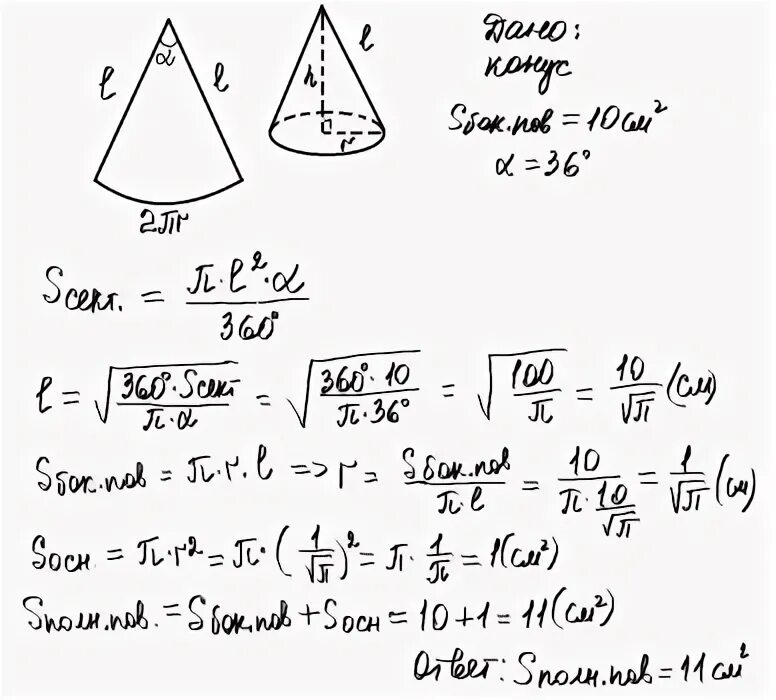 α
l
l
2πr
h
l
r
Дано:
конус
Sбок.пов = 10 см²
α = 36°
Sсект. = π·l²·α / 360°
l = √(360°·Sсект / π·α) = √(360°·10 / π·36°) = √(100 / π) = 10 / √π (см)
Sбок.пов = π·r·l => r = Sбок.пов / π·l = 10 / π·10/√π = 1 / √π (см)
Sосн = π·r² = π·(1 / √π)² = π·1/π = 1(см²)
Sполн.пов. = Sбок.пов + Sосн = 10 + 1 = 11(см²)
Ответ: Sполн.пов = 11 см²